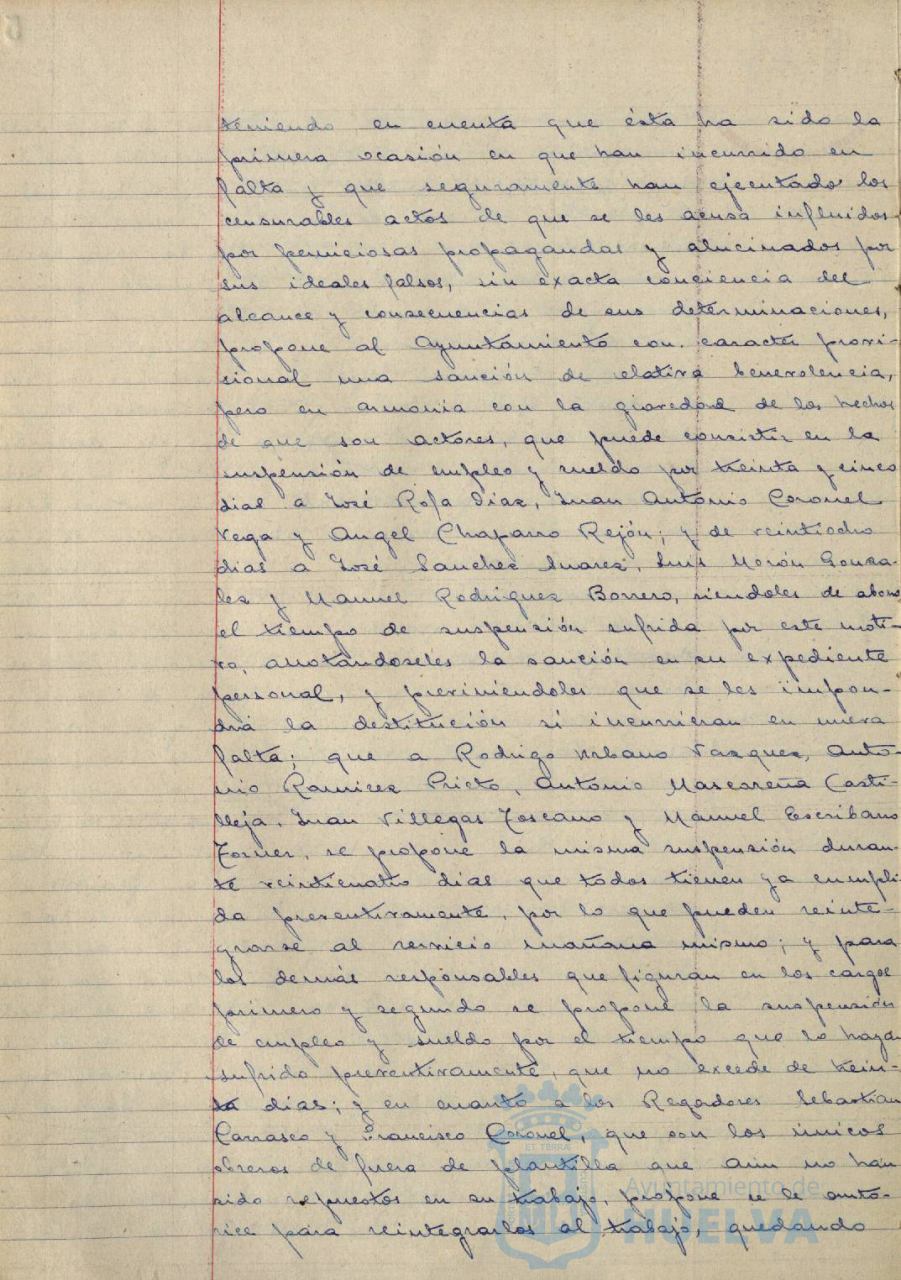 teniendo en cuenta que ésta ha sido la
primera ocasión en que han incurrido en
falta y que seguramente han ejecutado los
censurables actos de que se les acusa influidos
por perniciosas propagandas y alucinados por
sus ideales falsos, sin exacta conciencia del
alcance y consecuencias de sus determinaciones,
propone al Ayuntamiento con caracter provi-
sional una sanción de elativa benevolencia,
pero en armonia con la gravedad de los hechos
de que son actores, que puede consistir en la
suspensión de empleo y sueldo por treinta y cinco
dias a José Rofa Diaz, Juan Antonio Coronel
Vega y Angel Chaparro Rejón; y de veintiocho
dias a José Sanchez Suarez, Luis Morón Gonza-
lez y Manuel Rodriguez Borrero, siendoles de abono
el tiempo de suspensión sufrida por este moti-
vo, anotándoseles la sanción en su expediente
personal, y previniéndoles que se les impon-
drá la destitución si incurrieran en nueva
falta; que a Rodrigo Urbano Vazquez, Anto-
nio Ramirez Prieto, Antonio Mascareña Casti-
lleja, Juan Villegas Toscano y Manuel Escribano
Torner, se propone la misma suspensión duran-
te veinticuatro dias que todos tienen ya cumpli-
da preventivamente, por lo que pueden reinte-
grarse al servicio mañana mismo; y para
los demás responsables que figuran en los cargos
primero y segundo se propone la suspensión
de empleo y sueldo por el tiempo que la hayan
sufrido preventivamente, que no excede de trein-
ta dias; y en cuanto a los Regadores Sebastian
Carrasco y Francisco Coronel, que son los únicos
obreros de fuera de plantilla que aún no han
sido repuestos en su trabajo, propone se le auto-
rice para reintegrarlos al trabajo, quedando
Ayuntamiento de
HUELVA